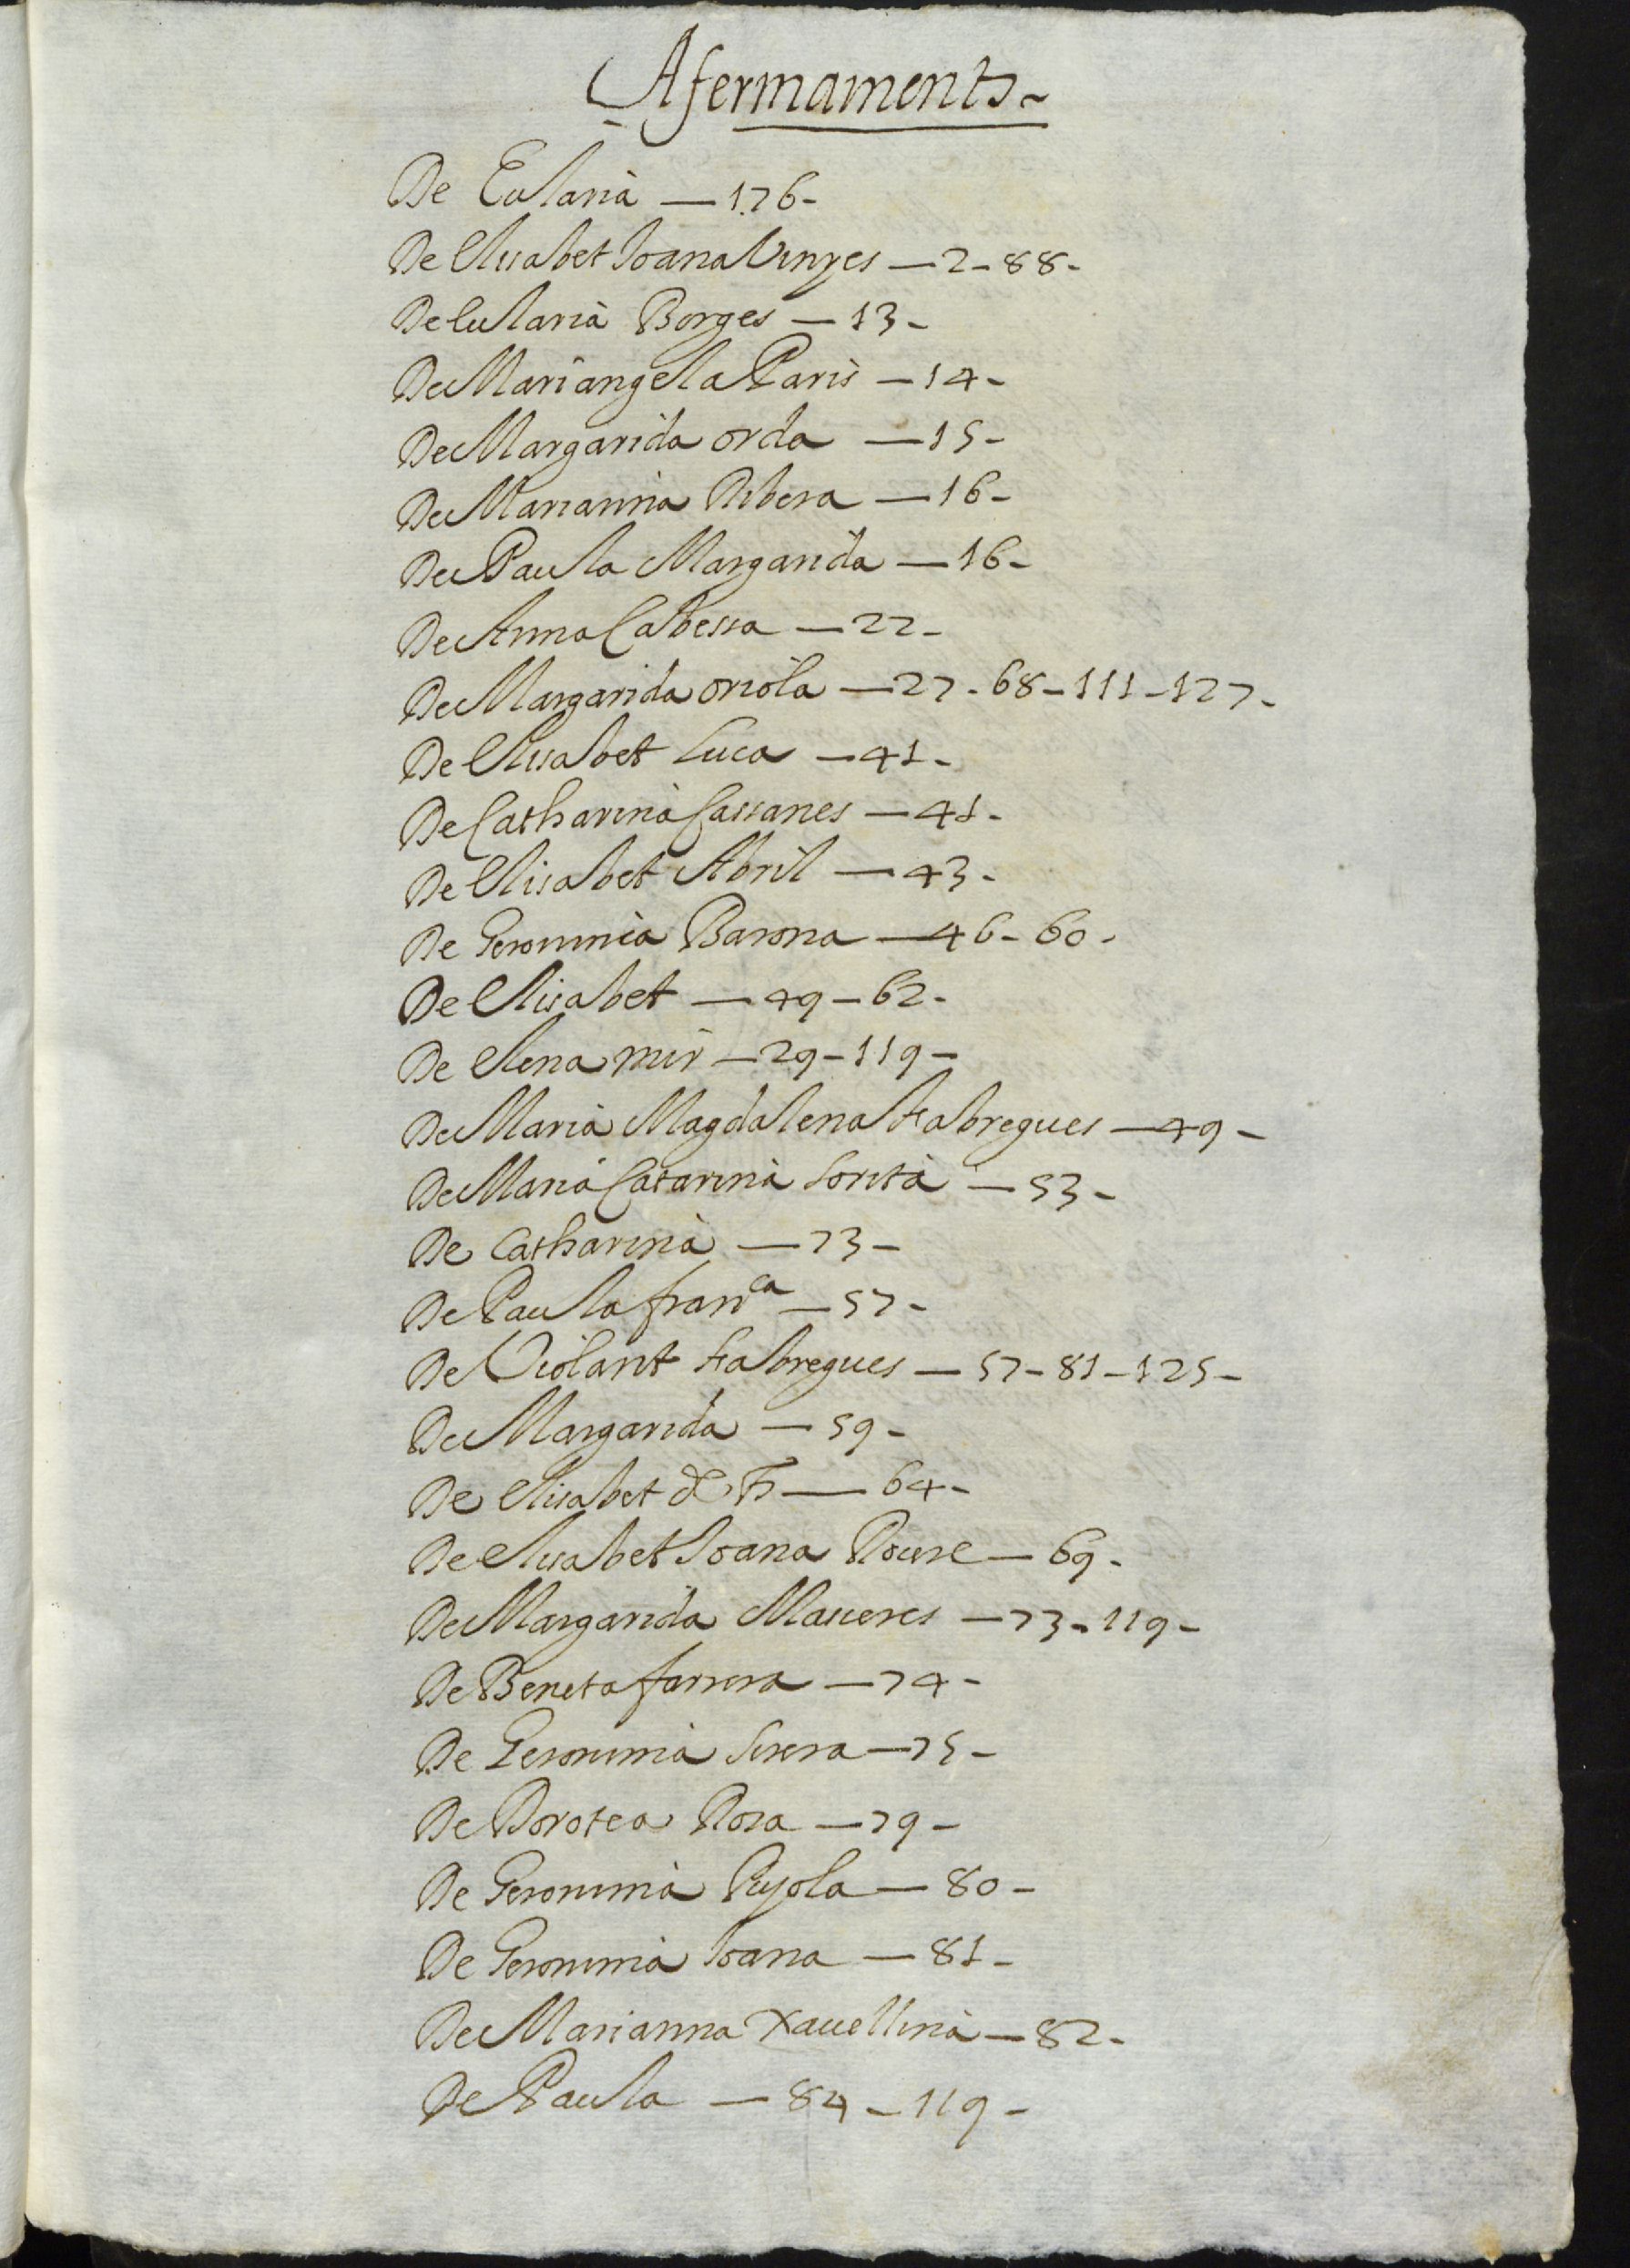 Afermaments -
De Eularia — 1.76 -
De Elisabet Joana Vinyes — 2 - 88 -
De Eularia Borges — 13 -
De Mariangela Paris — 14 -
De Margarida orda — 15 -
De Marianna Ribera — 16 -
De Paula Margarida — 16 -
De Anna Cabessa — 22 -
De Margarida oriola — 27 - 68 - 111 - 127 -
De Elisabet Luca — 41 -
De Catharina Cassanes — 41 -
De Elisabet Abril — 43 -
De Geronima Barona — 46 - 60 -
De Elisabet — 49 - 62 -
De Elena mir — 29 - 119 -
De Maria Magdalena Fabregues — 49 -
De Maria Catarina Sorita — 53 -
De Catharina — 73 -
De Paula fran.ca — 57 -
De Violant Fabregues — 57 - 81 - 125 -
De Margarida — 59 -
De Elisabet — 64 -
De Elisabet Joana Roure — 69 -
De Margarida Maueres — 73 - 119 -
De Beneta farrera — 74 -
De Geronima Sirera — 75 -
De Dorotea Rosa — 79 -
De Geronima Pujola — 80 -
De Geronima Joana — 81 -
De Marianna Xauellina — 82 -
De Paula — 84 - 119 -